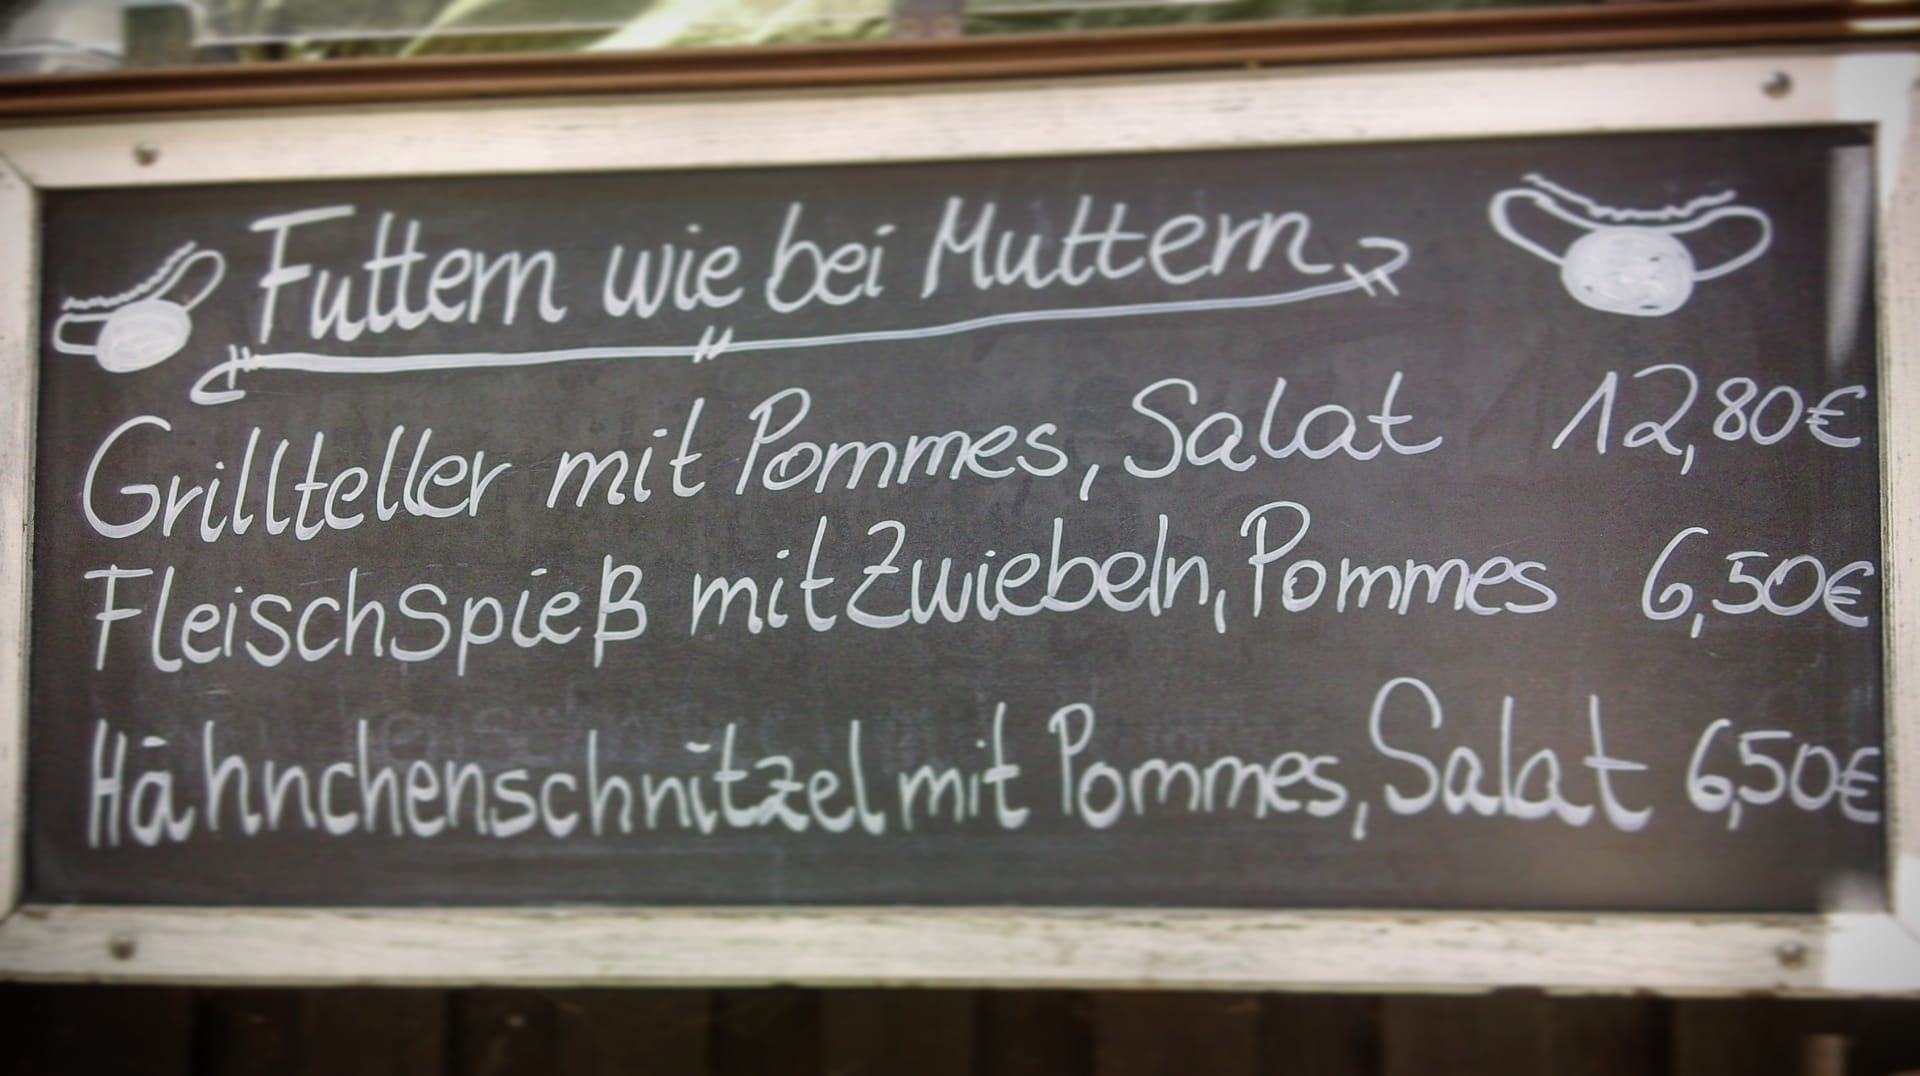 Futtern wie bei Muttern
Grillteller mit Pommes, Salat 12,80€
Fleischspieß mit Zwiebeln, Pommes 6,50€
Hähnchenschnitzel mit Pommes, Salat 6,50€